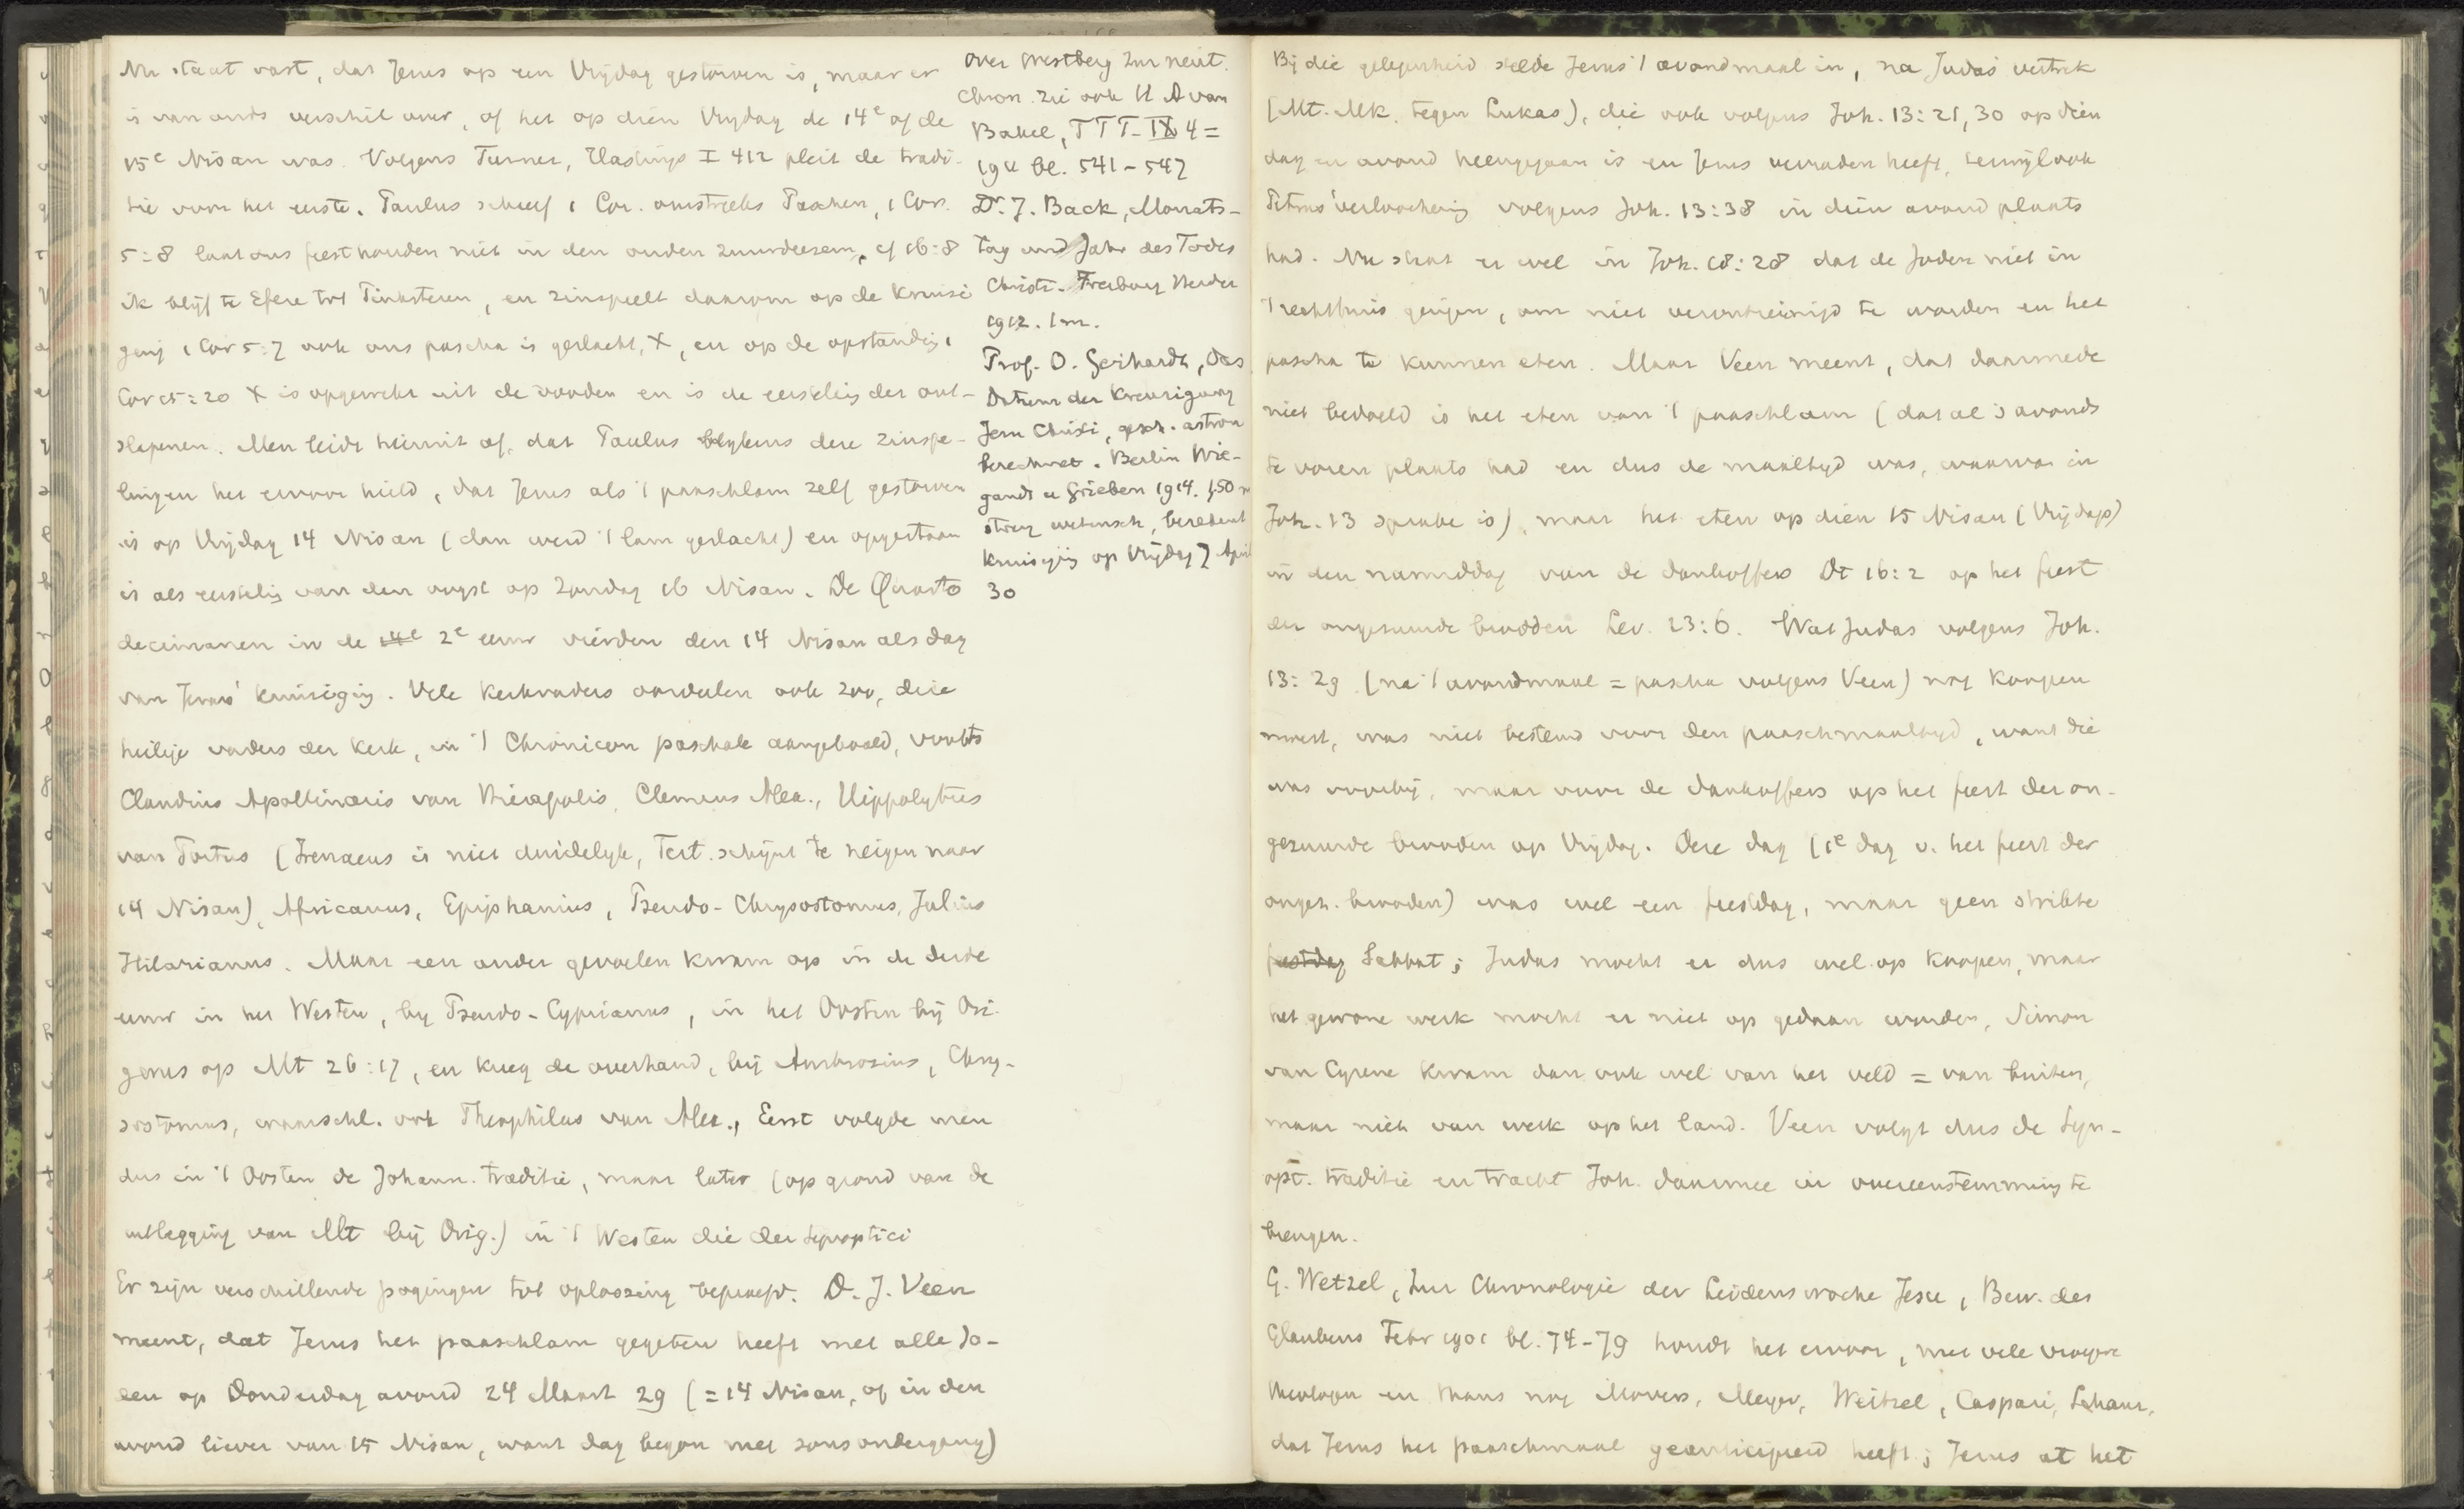 Nu staat vast, dat Jezus op een Vrijdag gestorven is, maar er
is van ouds verschil over, of het op dien Vrijdag de 14e of de
15e Nisan was. Volgens Turner, Hastings I 412 pleit de tradi-
tie voor het eerste. Paulus schreef 1 Cor. omstreeks Paschen, 1 Cor.
5:8 laat ons feesthouden niet in den ouden zuurdeesem, cf 16:8
ik blijf te Efeze tot Pinksteren, en zinspeelt daarom op de kruisi
ging 1 Cor 5:7 ook ons pascha is geslacht, X, en op de opstanding 1
Cor 15:20 X is opgewekt uit de dooden en is de eersteling der ont-
slapenen. Men leidt hieruit af, dat Paulus blijkens deze zinspe-
lingen het ervoor hield, dat Jezus als 't paaschlam zelf gestorven
is op Vrijdag 14 Nisan (dan werd 't lam geslacht) en opgestaan
is als eersteling van den oogst op Zondag 16 Nisan. De Quarto
decimanen in de 14e 2e eeuw vierden den 14 Nisan als dag
van Jezus' kruisiging. Vele kerkvaders oordeelen ook zoo, deze
heilige vaders der kerk, in 't Chronicon paschale aangehaald, voorts
Claudius Apollinaris van Hierapolis, Clemens Alex., Hippolytus
van Portus (Irenaeus is niet duidelyk, Tert. schijnt te neigen naar
14 Nisan), Africanus, Epiphanius, Pseudo-Chrysostomus, Julius
Hilarianus. Maar een ander gevoelen kwam op in de derde
eeuw in het Westen, by Pseudo-Cyprianus, in het Oosten bij Ori-
genes op Mt 26:17, en kreeg de overhand, bij Ambrosius, Chry-
sostomus, waarschl. ook Theophilus van Alex., Eerst volgde men
dus in 't Oosten de Johann. traditie, maar later (op grond van de
uitlegging van Mt bij Orig.) in 't Westen die der Synoptici
Er zijn verschillende pogingen tot oplossing beproefd. D. J. Veen
meent, dat Jezus het paaschlam gegeten heeft met alle Jo-
den op Donderdag avond 24 Maart 29 (= 14 Nisan, of in den
avond liever van 15 Nisan, want dag begon met zonsondergang)
Over Westberg Zur neut.
Chron. zie ook H A van
Bakel, TTT. IX 4 =
1911 bl. 541-547
Dr. J. Bach, Monats-
tag und Jahr des Todes
Christi. Freiburg Herder
1912. 1 m.
Prof. O. Gerhardt, Das
Datum der Kreuzigung
Jesu Christi, gesch. astron
berechnet. Berlin Wie-
gandt u Grieben 1914. 1,50 m
streng wetensch, berekent
kruisging op Vrijdag 7 April
30
Bij die gelegenheid stelde Jezus 't avondmaal in, na Judas' vertrek
(Mt. Mk. tegen Lukas), die ook volgens Joh. 13:21, 30 op dien
dag en avond heengegaan is en Jezus verraden heeft, terwijl ook
Petrus' verloochening volgens Joh. 13:38 in dien avond plaats
had. Nu staat er wel in Joh. 18:28 dat de Joden niet in
't rechthuis gingen, om niet verontreinigd te worden en het
pascha te kunnen eten. Maar Veen meent, dat daarmede
niet bedoeld is het eten van 't paaschlam (dat al 's avonds
te voren plaats had en dus de maaltyd was, waarvan in
Joh. 13 sprake is), maar het eten op dien 15 Nisan (Vrijdags)
in den namiddag van de dankoffers Dt 16:2 op het feest
der ongezuurde brooden Lev. 23:6. Wat Judas volgens Joh.
13:29 (na 't avondmaal = pascha volgens Veen) nog koopen
moest, was niet bestemd voor den paaschmaaltyd, want die
was voorbij, maar voor de dankoffers op het feest der on-
gezuurde brooden op Vrijdag. Deze dag (1e dag v. het feest der
ongez. brooden) was wel een feestdag, maar geen strikte
feestdag Sabbat; Judas mocht er dus wel op koopen, maar
het gewone werk mocht er niet op gedaan worden, Simon
van Cyrene kwam dan ook wel van het veld = van buiten,
maar niet van werk op het land. Veen volgt dus de Syn-
opt. traditie en tracht Joh. daarmee in overeenstemming te
brengen.
G. Wetzel, Zur Chronologie der Leidenswoche Jesu, Bew. des
Glaubens Febr 1901 bl. 74-79 houdt het ervoor, met vele vroegere
theologen en thans nog Movers, Meyer, Weitzel, Caspari, Schanz,
dat Jezus het paaschmaal geanticipeerd heeft; Jezus at het